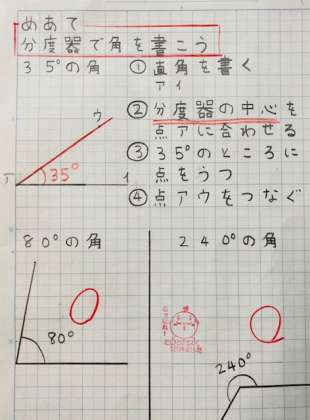 めあて
分度器で角を書こう
35°の角
①直角を書く
アイ
②分度器の中心を
点アに合わせる
③35°のところに
点をうつ
④点アウをつなぐ
ウ
ア
35°
イ
80°の角
80°
240°の角
240°